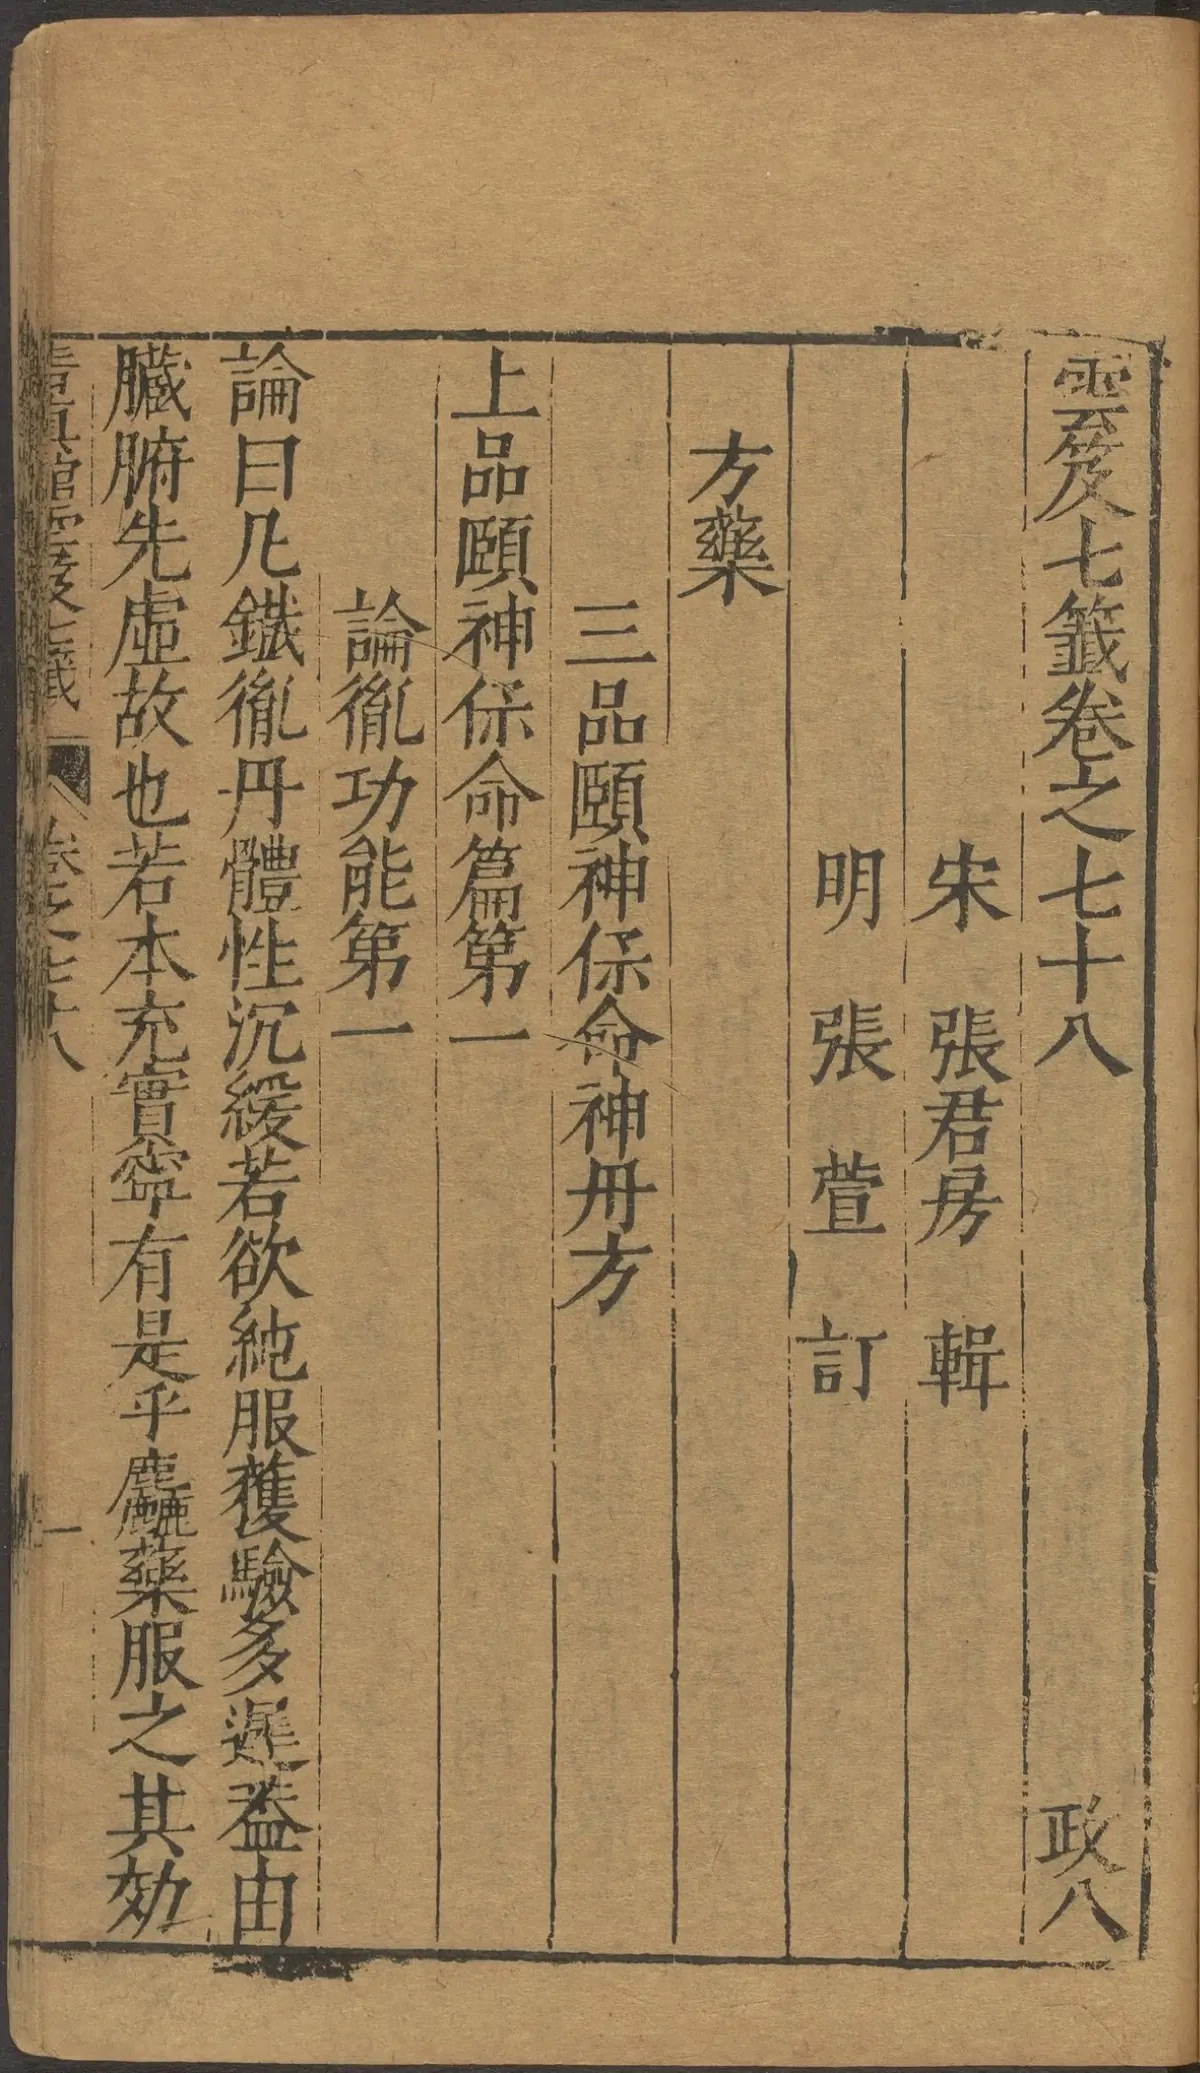 雲笈七籤卷之七十八 政八
宋 張君房 輯
明 張萱 訂
方藥
三品頤神保命神丹方
上品頤神保命篇第一
論鐵胤功能第一
論曰凡鐵胤丹體性沉緩若欲純服獲驗多遲葢由
臟腑先虛故也若本充實寧有是乎麤藥服之其効
清真館雲笈七籤 卷之七十八 一